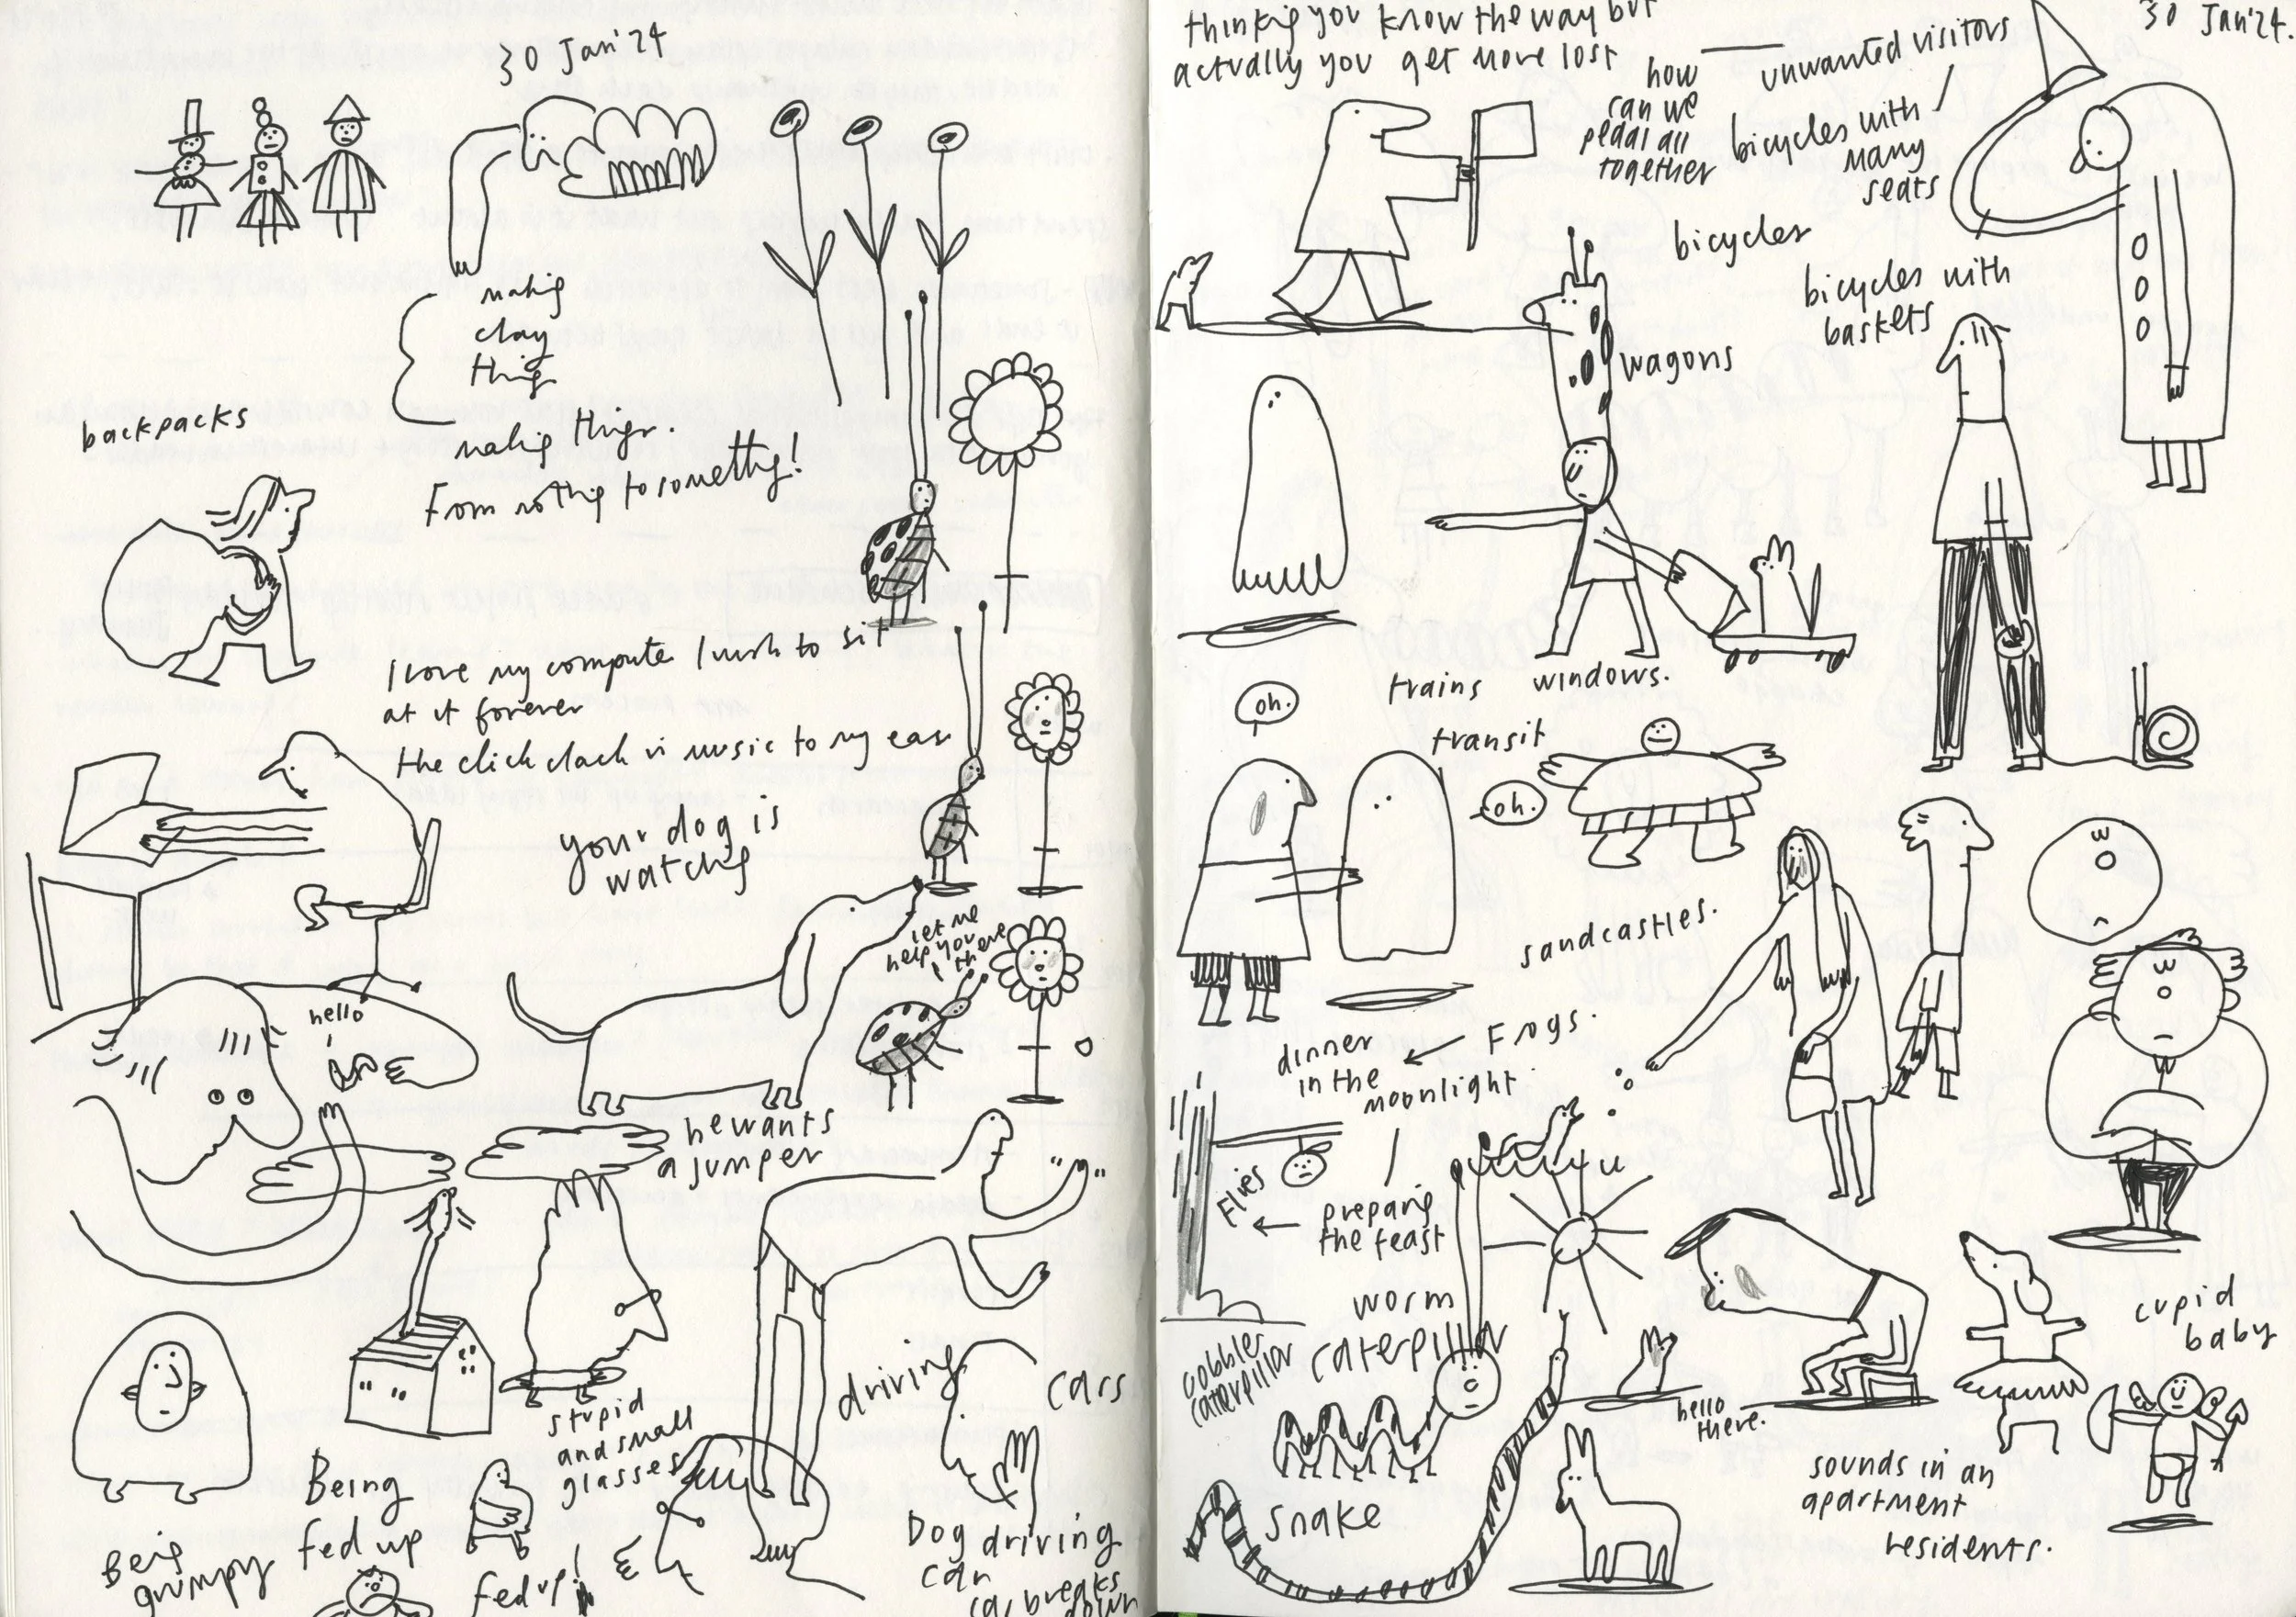 30 Jan '24
making
clay
things
making things.
From nothing to something!
backpacks
I love my computer I wish to sit
at it forever
the click clack is music to my ears
your dog is
watching
let me
help you
there
hello
he wants
a jumper
" "
stupid
and small
glasses
driving
cars
Being
fed up
Being
grumpy
fed up!
Dog driving
car
car breaks
down
thinking you know the way but
actually you get more lost
30 Jan '24.
how
can we
pedal all
together
unwanted visitors
bicycles with
many
seats
bicycles
bicycles with
baskets
wagons
trains windows.
transit
oh.
oh.
sandcastles.
Frogs.
dinner
in the
moonlight
Flies
preparing
the feast
worm
caterpillar
cobbler
caterpillar
snake
hello
there.
cupid
baby
sounds in an
apartment
residents.